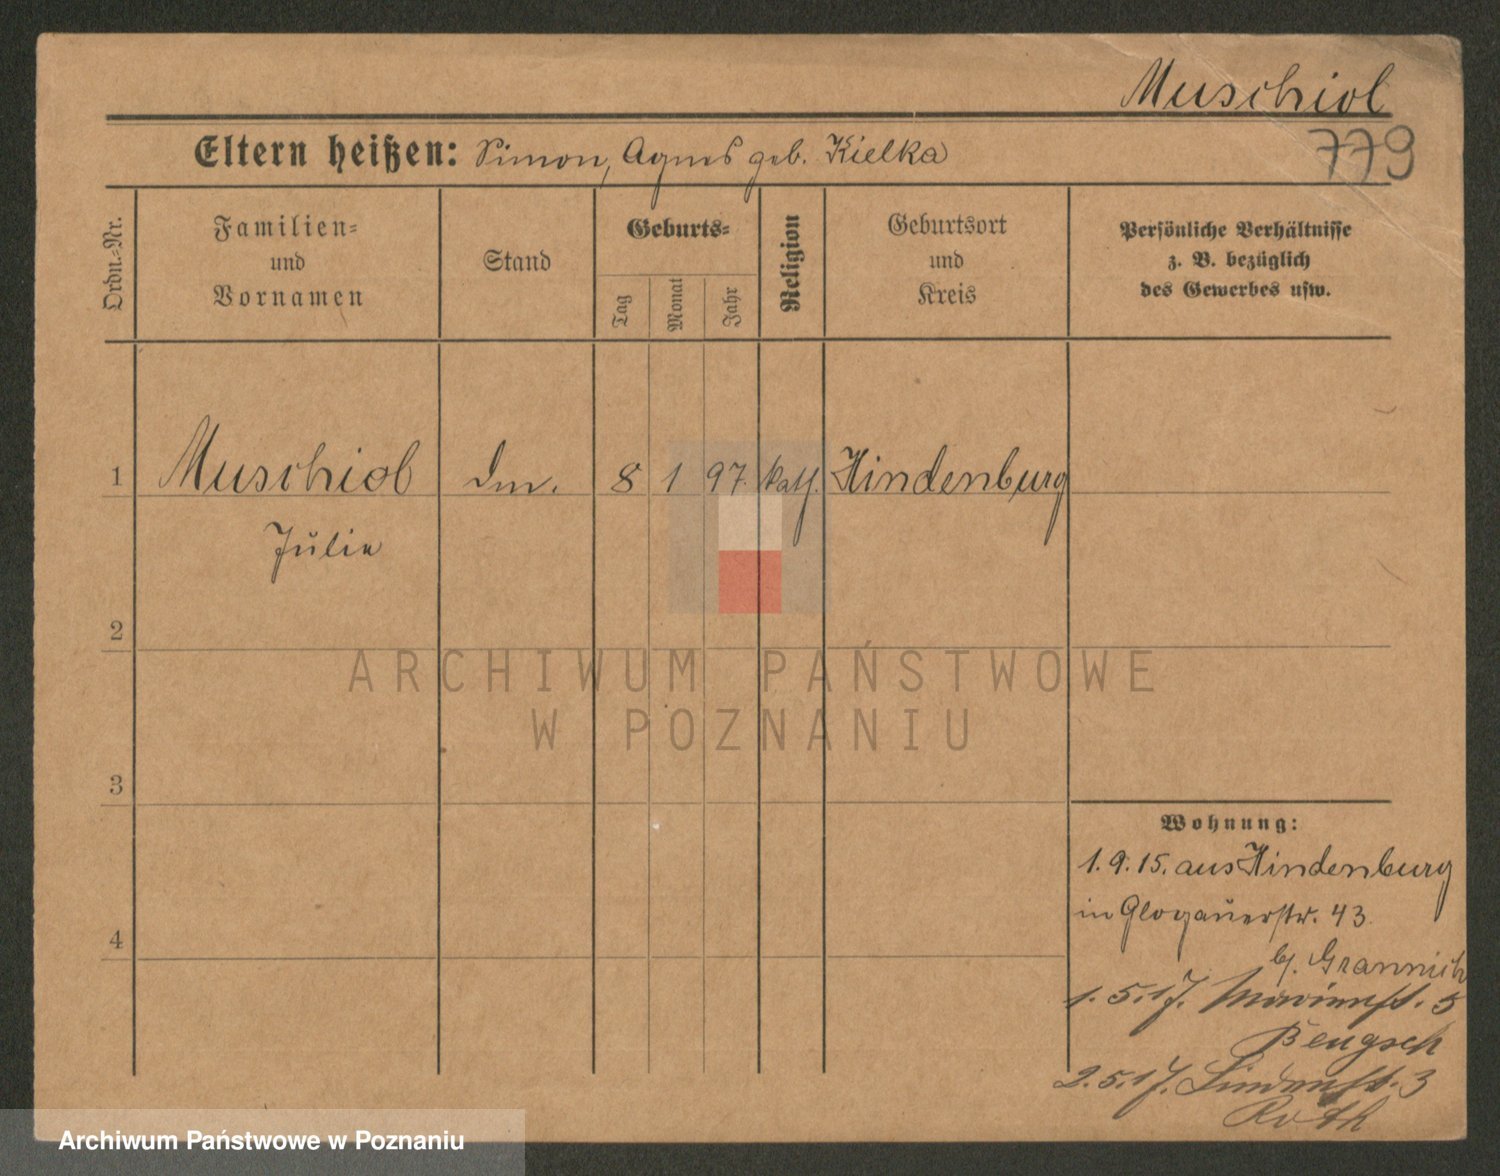 Muschiol
779
Eltern heißen: Simon, Agnes geb. Kielka
Ordn.-Nr.
Familien-
und
Vornamen
Stand
Geburts-
Tag
Monat
Jahr
Religion
Geburtsort
und
Kreis
Persönliche Verhältnisse
z. B. bezüglich
des Gewerbes usw.
1 Muschiol Dm. 8 1 97. kath. Hindenburg
Julie
2
3
4
Wohnung:
1.9.15. aus Hindenburg
in Glogauerstr. 43
b/. Grannich
1.5.17. 5
Bengsch
2.5.17. Lindenst. 3
Roth
ARCHIWUM PAŃSTWOWE
W POZNANIU
Archiwum Państwowe w Poznaniu